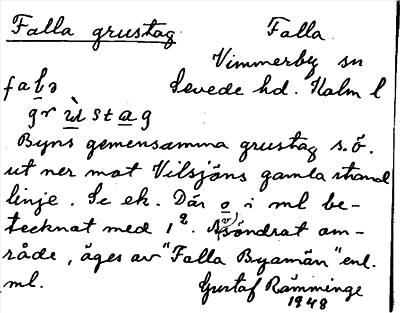 Falla grustag Falla
Vimmerby sn
fabə Sevede hd. Kalm l
gr ùstag
Byns gemensamma grustag s.ö.
ut ner mot Vilsjöns gamla strand
linje. Se ek. Där o i ml be-
tecknat med 1². Avsöndrat om-
råde, äges av "Falla Byamän" enl.
ml. Gustaf Ramminge
1948